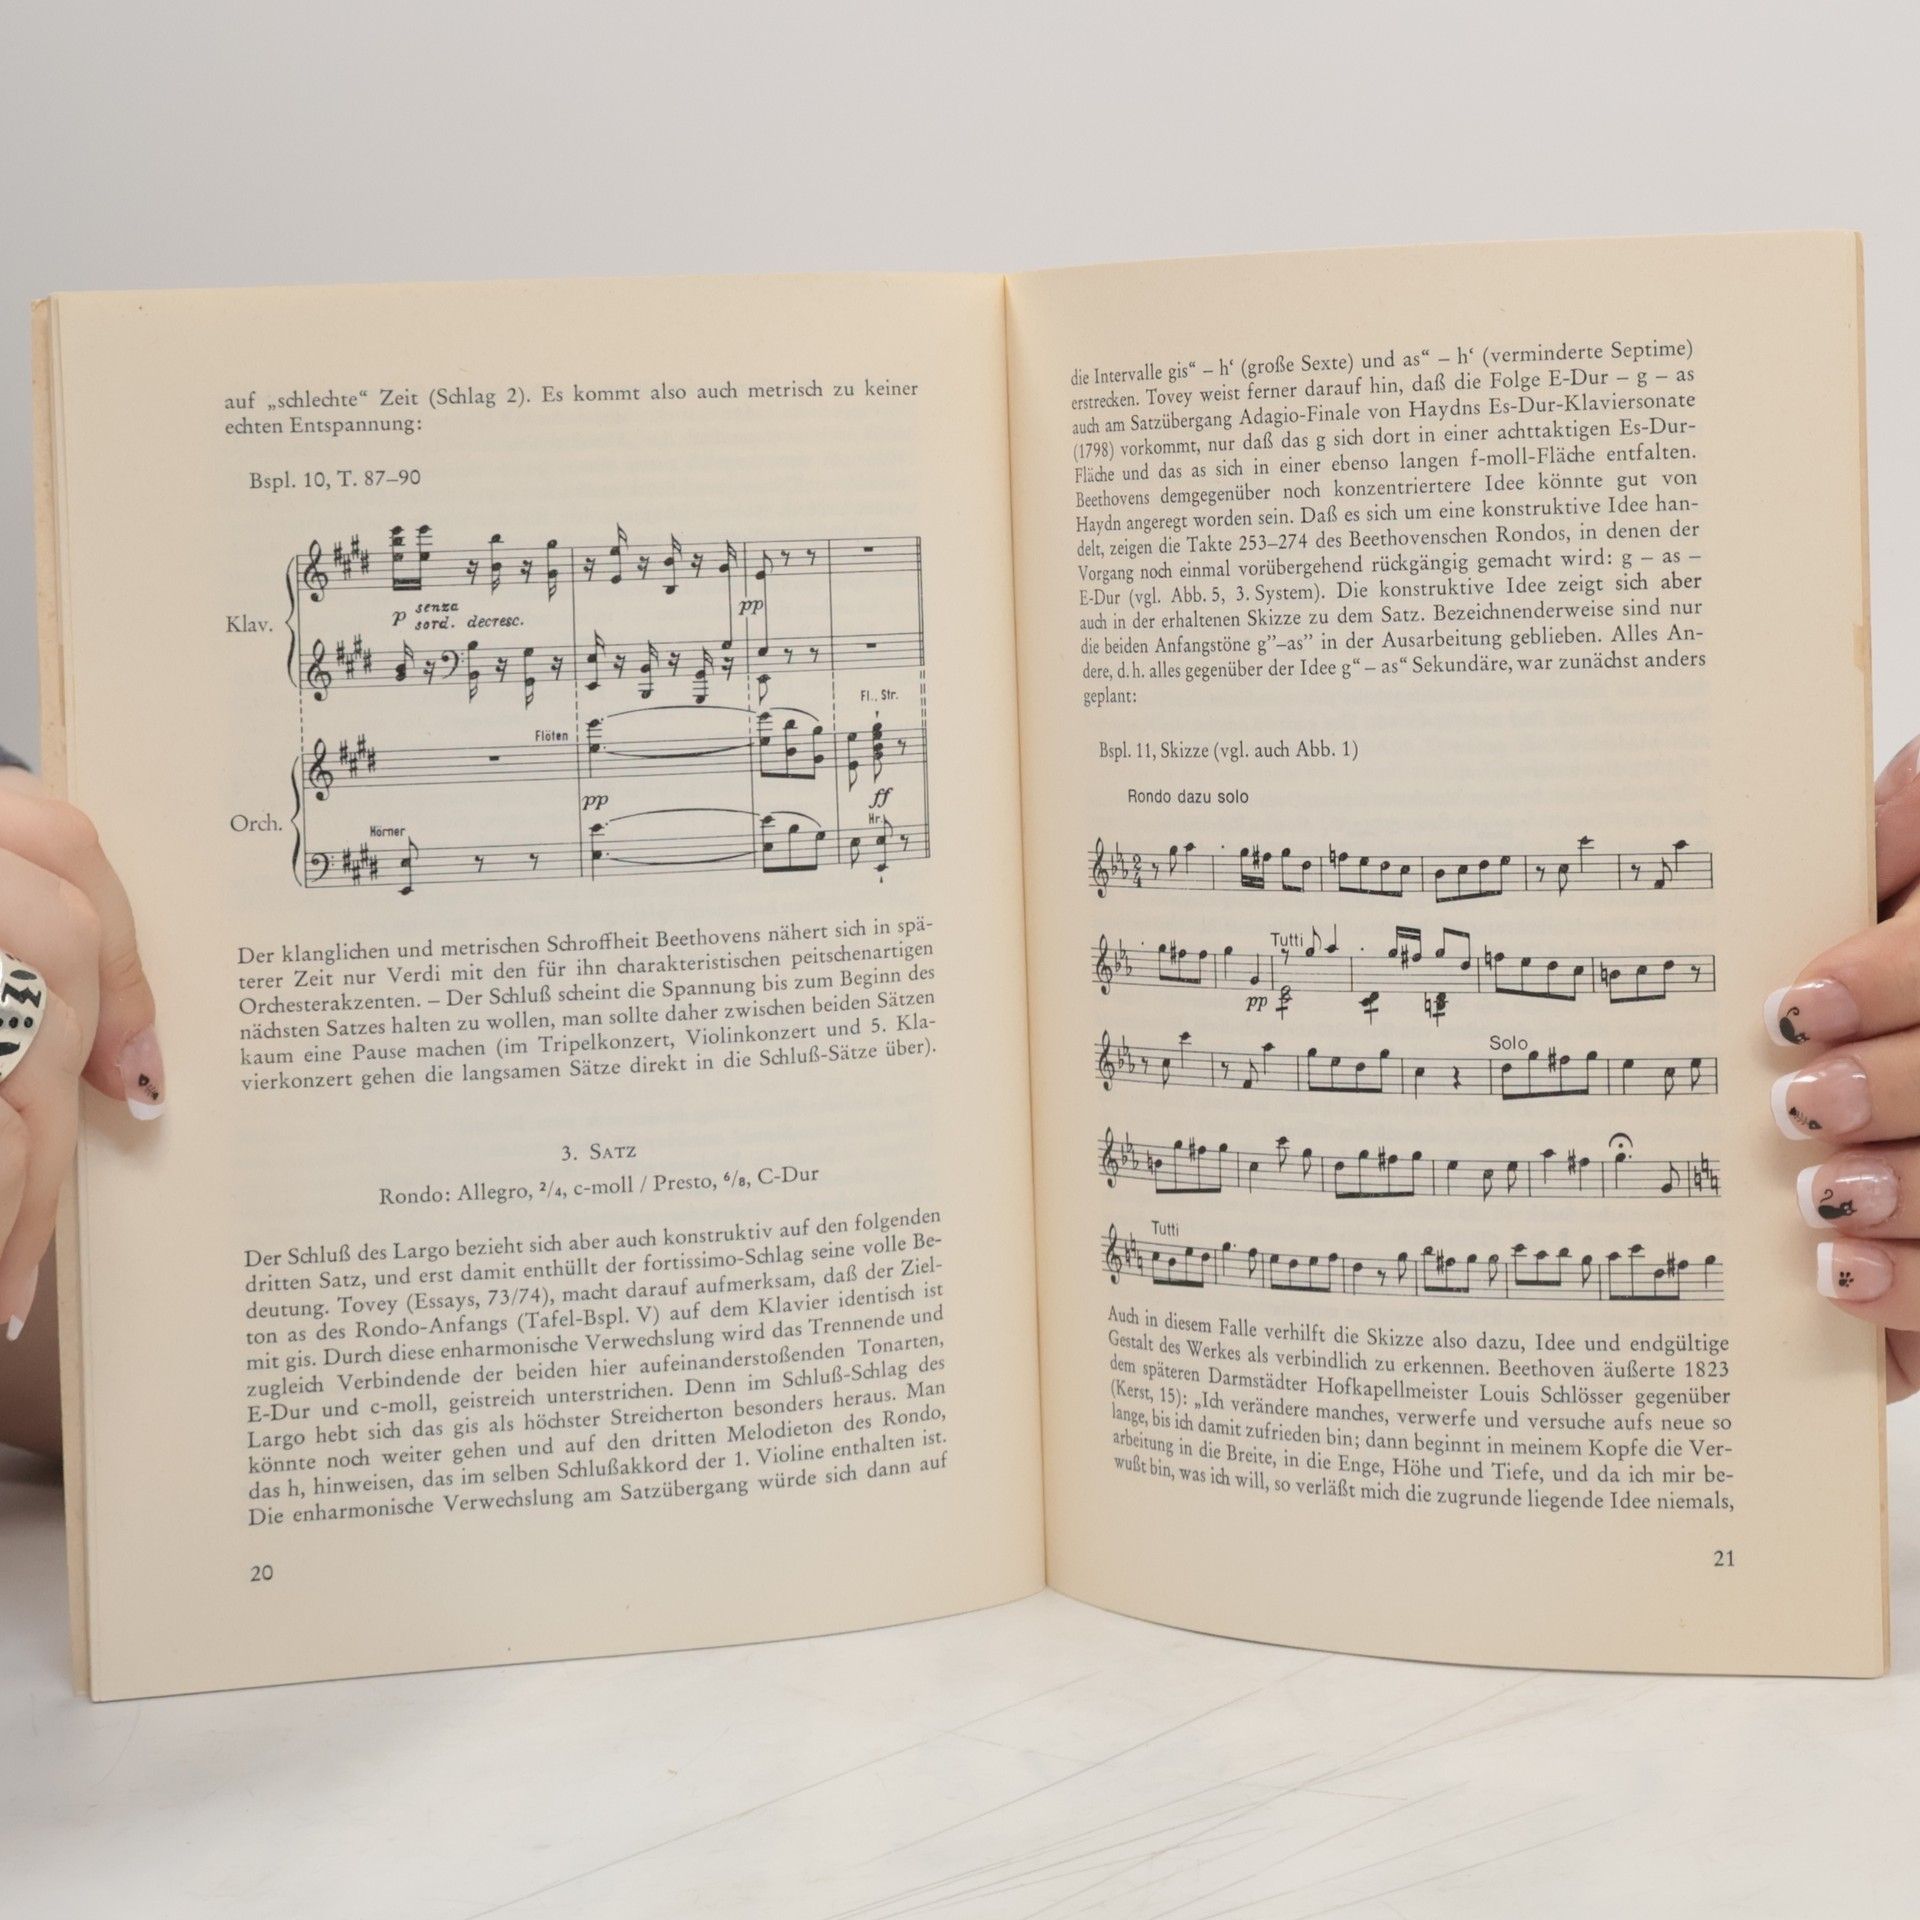 auf „schlechte“ Zeit (Schlag 2). Es kommt also auch metrisch zu keiner
echten Entspannung:
Bspl. 10, T. 87–90
Klav.
p senza
sord. decresc.
pp
Fl., Str.
Flöten
pp
ff
Orch.
Hörner
Hr.
Der klanglichen und metrischen Schroffheit Beethovens nähert sich in spä-
terer Zeit nur Verdi mit den für ihn charakteristischen peitschenartigen
Orchesterakzenten. – Der Schluß scheint die Spannung bis zum Beginn des
nächsten Satzes halten zu wollen, man sollte daher zwischen beiden Sätzen
kaum eine Pause machen (im Tripelkonzert, Violinkonzert und 5. Kla-
vierkonzert gehen die langsamen Sätze direkt in die Schluß-Sätze über).
3. SATZ
Rondo: Allegro, 2/4, c-moll / Presto, 6/8, C-Dur
Der Schluß des Largo bezieht sich aber auch konstruktiv auf den folgenden
dritten Satz, und erst damit enthüllt der fortissimo-Schlag seine volle Be-
deutung. Tovey (Essays, 73/74), macht darauf aufmerksam, daß der Ziel-
ton as des Rondo-Anfangs (Tafel-Bspl. V) auf dem Klavier identisch ist
mit gis. Durch diese enharmonische Verwechslung wird das Trennende und
zugleich Verbindende der beiden hier aufeinanderstoßenden Tonarten,
E-Dur und c-moll, geistreich unterstrichen. Denn im Schluß-Schlag des
Largo hebt sich das gis als höchster Streicherton besonders heraus. Man
könnte noch weiter gehen und auf den dritten Melodieton des Rondo,
das h, hinweisen, das im selben Schlußakkord der 1. Violine enthalten ist.
Die enharmonische Verwechslung am Satzübergang würde sich dann auf
20
die Intervalle gis“ – h‘ (große Sexte) und as“ – h‘ (verminderte Septime)
erstrecken. Tovey weist ferner darauf hin, daß die Folge E-Dur – g – as
auch am Satzübergang Adagio-Finale von Haydns Es-Dur-Klaviersonate
(1798) vorkommt, nur daß das g sich dort in einer achttaktigen Es-Dur-
Fläche und das as sich in einer ebenso langen f-moll-Fläche entfalten.
Beethovens demgegenüber noch konzentriertere Idee könnte gut von
Haydn angeregt worden sein. Daß es sich um eine konstruktive Idee han-
delt, zeigen die Takte 253–274 des Beethovenschen Rondos, in denen der
Vorgang noch einmal vorübergehend rückgängig gemacht wird: g – as –
E-Dur (vgl. Abb. 5, 3. System). Die konstruktive Idee zeigt sich aber
auch in der erhaltenen Skizze zu dem Satz. Bezeichnenderweise sind nur
die beiden Anfangstöne g”–as” in der Ausarbeitung geblieben. Alles An-
dere, d.h. alles gegenüber der Idee g“ – as“ Sekundäre, war zunächst anders
geplant:
Bspl. 11, Skizze (vgl. auch Abb. 1)
Rondo dazu solo
Tutti
pp
Solo
Tutti
Auch in diesem Falle verhilft die Skizze also dazu, Idee und endgültige
Gestalt des Werkes als verbindlich zu erkennen. Beethoven äußerte 1823
dem späteren Darmstädter Hofkapellmeister Louis Schlösser gegenüber
(Kerst, 15): „Ich verändere manches, verwerfe und versuche aufs neue so
lange, bis ich damit zufrieden bin; dann beginnt in meinem Kopfe die Ver-
arbeitung in die Breite, in die Enge, Höhe und Tiefe, und da ich mir be-
wußt bin, was ich will, so verläßt mich die zugrunde liegende Idee niemals,
21